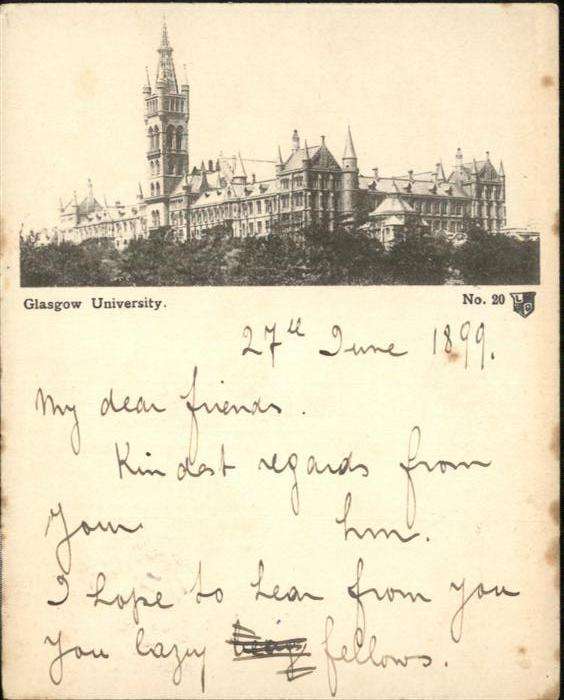 Glasgow University. No. 20
27th June 1899.
My dear friends.
Kindest regards from
Your
I hope to hear from you
you lazy fellows.